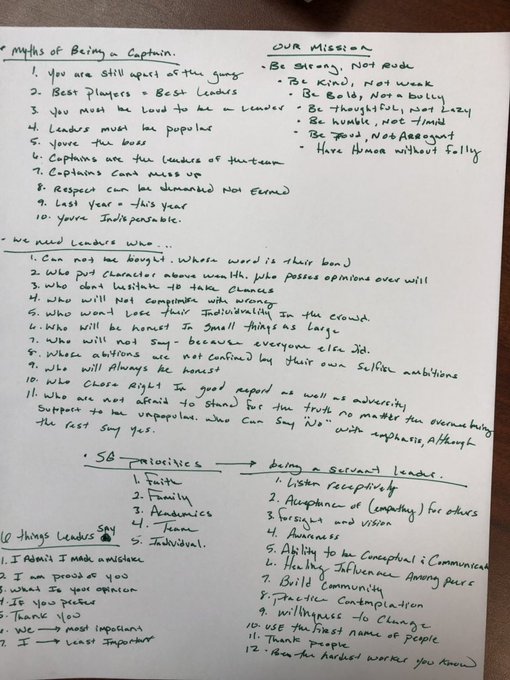 Myths of Being a Captain.
1. You are still apart of the gang
2. Best Players = Best Leaders
3. You must be Loud to be a Leader
4. Leaders must be popular
5. Youre the boss
6. Captains are the leaders of the team
7. Captains Cant mess up
8. Respect can be demanded Not Earned
9. Last Year = this year
10. Youre Indispensable.
OUR MISSION
• Be Strong, Not Rude
• Be Kind, Not weak
• Be Bold, Not a bully
• Be thoughtful, Not Lazy
• Be humble, Not timid
• Be Proud, Not Arrogant
• Have Humor without folly
- We need Leaders who...
1. Can not be bought. Whose word is their bond
2. Who put Character above wealth. Who posses opinions over will
3. Who dont hesitate to take Chances
4. Who will Not compromise with wrong
5. Who wont Lose their Individuality In the crowd.
6. Who will be honest In Small things as Large
7. Who will not say - because everyone else did.
8. Whose abitions are not confined by their own Selfish ambitions
9. Who will Always be honest
10. Who Chose Right In good report as well as adversity
11. Who are not afraid to Stand for the truth no matter the
Support to be unpopular. Who Can Say "No" with emphasis, Although
the rest say yes.
• 5 priorities → being a servant leader.
1. Faith
2. Family
3. Academics
4. Team
5. Individual.
1. Listen receptively
2. Acceptance of (empathy) for others
3. Forsight and vision
4. Awareness
5. Ability to be Conceptual & Communicate
6. Healing Influence Among peers
7. Build Community
8. Practice Contemplation
9. Willingness to Change
10. Use the first name of people
11. Thank people
12. the hardest worker you know
6 things Leaders SAY
1. I Admit I made a mistake
2. I am proud of you
3. What Is your opinion
4. If You prefer
5. Thank you
6. We → most important
7. I → Least Important